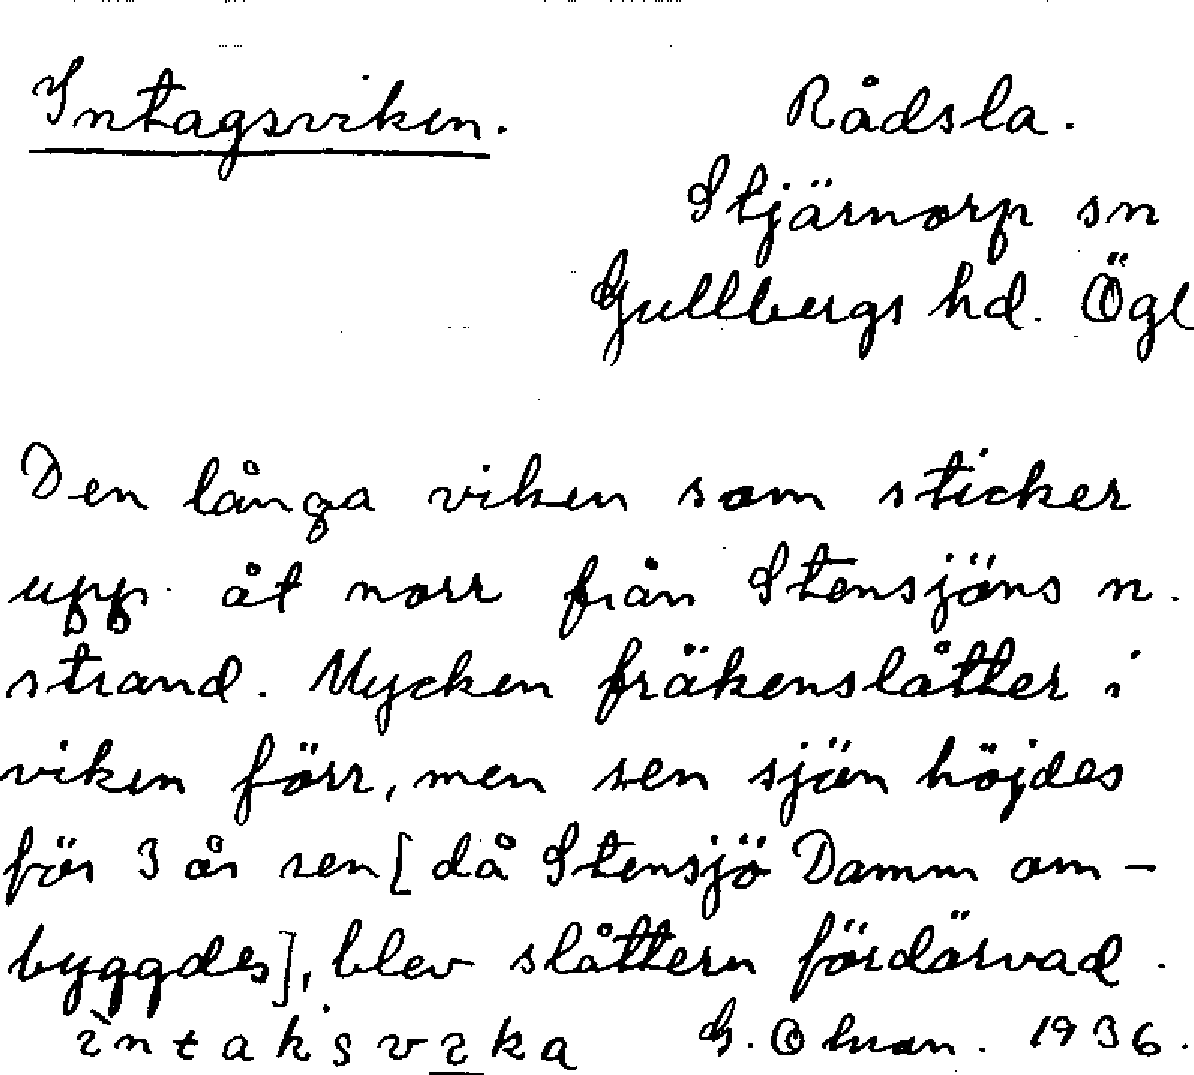 Intagsviken. Rådsla.
Stjärnorp sn
Gullbergs hd. Ögl
Den långa viken som sticker
upp åt norr från Stensjöns n.
strand. Mycken fräkenslåtter i
viken förr, men sen sjön höjdes
för 3 år sen [då Stensjö Damm om-
byggdes], blev slåttern fördärvad.
intaksvika G. Ohman. 1936.